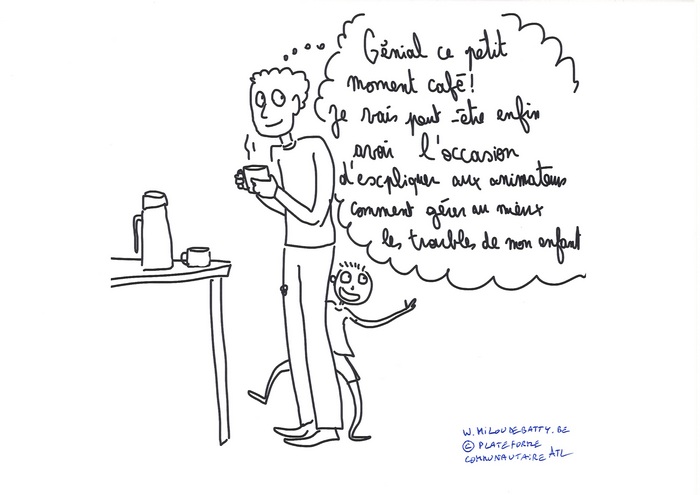 Génial ce petit
moment café!
Je vais peut-être enfin
avoir l'occasion
d'escpliquer aux animateurs
comment gérer au mieux
les troubles de mon enfant
W.MILOUDEGATTY.BE
© PLATEFORME
COMMUNAUTAIRE ATL